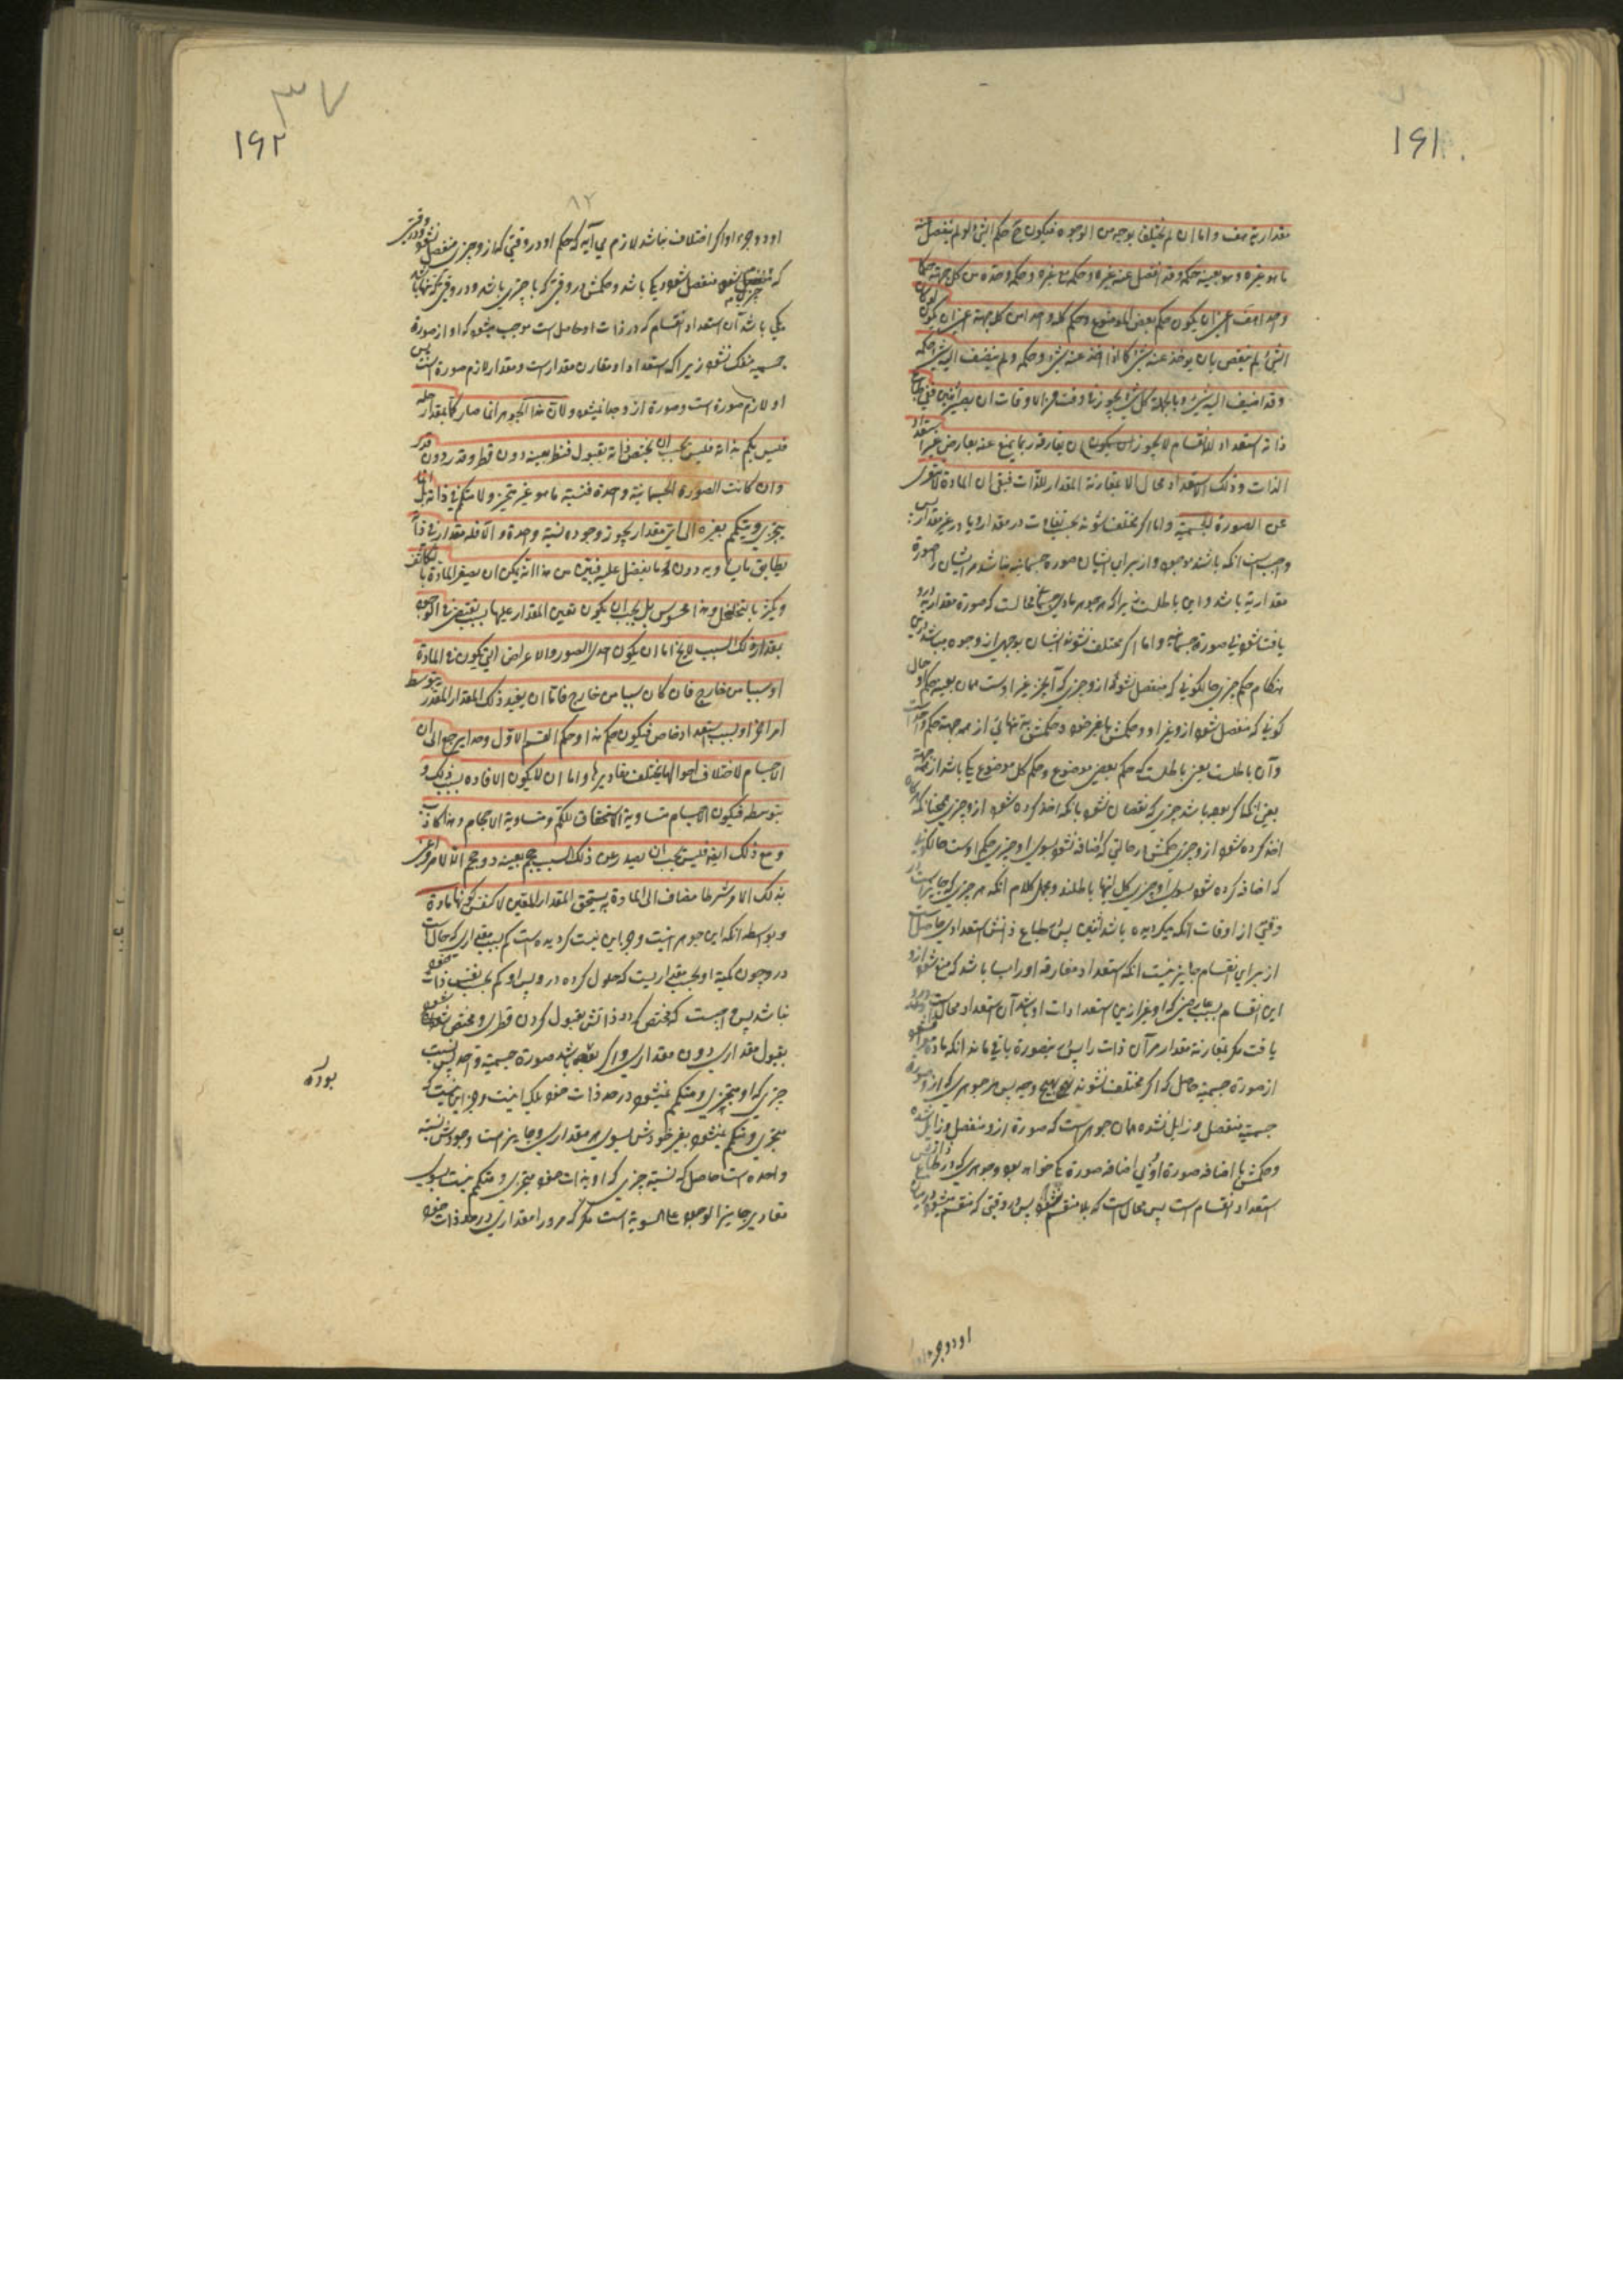 ١٦١
مقدارية هف واما ان لم يختلفا بوجه من الوجوه فيكون ح حكم الشئ لو لم ينفصل عنه
ما هو غيره وهو بعينه حكمه وقد انفصل عنه غيره وحكمه مع غيره وحكمه وحده من كل جهة حكما
واحدا هف اعنى ان يكون حكم بعض الموضوع وحكم كله واحدا من كل جهة اعنى ان يكون
الشئ لم ينقص بان يوخذ عنه شئ كما اذا اخذ عنه شئ وحكمه ولم يضف اليه شئ حكمه
وقد اضيف اليه شئ وبالجملة كل شئ يجوز فى وقت من الاوقات ان يصير اثنين ففى طباع
ذاته استعداد للانقسام لا يجوز ان يفارقه ربما يمنع عنه بعارض غير استعداد
الذات وذلك الاستعداد محال الا بمقارنة المقدار للذات فبقى ان المادة لا تتعرى
عن الصورة الجسمية واما اگر مختلف شوند بحسب تفاوت در مقدار و يا در غير مقدار پس
واجب است انكه باشند موجود و از براى ايشان صورة جسمانيه نباشد مر ايشان را صورة
مقداريه باشد و اين باطلست زيرا كه هر جوهر مادى جسمانى محالست كه صورة مقداريه درو
يافت شود بى صورة جسمانيه و اما اگر مختلف نشوند ايشان بوجهى از وجوه مى باشد درين
هنگام حكم چيزى حالكونى كه منفصل نشود ازو چيزى كه آنچيز غير اوست همان بعينه حكم او حال
كونى كه منفصل شود ازو غير او و حكمش با غير خود و حكمش به تنهائى از همه جهة حكم واحد است
وآن باطلست يعنى باطلست كه حكم بعض موضوع و حكم كل موضوع يكى باشد از همه جهة
يعنى انكه اگر بوده باشد چيزى كه نقصان نشود بانكه اخذ كرده شود ازو چيزى همچنانكه هرگاه
اخذ كرده شود ازو چيزى حكمش در حالتى كه اضافه نشود بسوى او چيزى حكم اوست حالكونى
كه اضافه كرده شود بسوى او چيزى كل اينها باطلند و مجمل كلام انكه هر چيزى كه جايز است در
وقتى از اوقات انكه گرديده باشد اثنين پس در طباع ذاتش استعدادى حاصل است
از براى انقسام جايز نيست انكه استعداد مفارقه او را بسا باشد كه منع شود ازو
اين انقسام بسبب عارضى كه او غير از اين استعدادات او باشد آن استعداد محالست درو
يافت مگر بمقارنة مقدار مر آن ذات را پس باقى ماند انكه مادة عارى نشود
از صورة جسميه حاصل كه اگر مختلف نشوند بهيچ وجه پس هر جوهرى كه ازو صورة
جسميه منفصل و زايل نشده همان جوهر است كه صورة ازو منفصل و زايل شده
و حكمش با اضافه صورة و بى اضافه صورة يكى خواهد بود و جوهرى كه در طباع ذاتش
استعداد انقسام است پس محال است كه بلا منقسم شود پس در وقتى كه منقسم ميشود درميان
او دو جوهر
٣٧
١٦٢
٨٢
او دو جوهر او اگر اختلاف نباشد لازم مى آيد كه حكم او در وقتى كه ازو چيزى منفصل نشود و در وقتى
كه چيزى ازو منفصل شود يكى باشد و حكمش در وقتى كه با چيزى باشد و در وقتى كه تنها باشد
يكى باشد آن استعداد انقسام كه در ذات او حاصل است موجب ميشود كه او از صورة
جسميه منفك نشود زيرا كه استعداد او مقارن مقدار است و مقدار لازم صورة است پس
او لازم صورة است و صورة ازو جدا نميشود ولان هذا الجوهر انما صار كما بمقدار حله
فليس بكم بذاته فليس يجب ان يختص ذاته بقبول قطر بعينه دون قطر وقدر دون قدر
وان كانت الصورة الجسمانية واحدة فنسبة ما هو غير متجز ولا متكم فى ذاته بل انما
يتجزى ويتكمم بغيره الى اى مقدار يجوز وجوده نسبة واحدة والا فله مقدار فى ذاته
يطابق ما يساويه دون ما يفضل عليه فبين من هذا انه يمكن ان يصغر المادة بالتكاثف
ويكبر بالتخلخل وهذا محسوس بل يجب ان يكون تعين المقدار عليها بسبب يقتضى فى الوجود
بمقدار ذلك السبب لا يخ اما ان يكون احد الصور والاعراض التى تكون فى المادة
او سببا من خارج فان كان سببا من خارج فاما ان يفيد ذلك المقدار المقدر بتوسط
امر اخر او بسبب استعداد خاص فيكون حكم هذا وحكم القسم الاول واحدا يرجع الى ان
الاجسام لاختلاف احوالها يختلف مقاديرها واما ان لا يكون الافادة بسبب ذلك و
بتوسطه فيكون الاجسام متساوية الاستحقاق للكم ومتساوية الاحجام وهذا كاذب
ومع ذلك ايضا فليس يجب ان يصدر عن ذلك السبب حجم بعينه دون حجم الا لامر واعنى
بذلك الامر شرطا مضاف الى المادة به يستحق المقدار المعين لا لنفس كونها مادة
و بواسطه انكه اين جوهر اينست و جز اين نيست گرديده است كم بسبب مقدارى كه حالست
درو چون كميه او بحسب مقداريست كه حلول كرده درو پس او كم بحسب نفس ذات خود
نباشد پس واجب نيست كه مختص گردد ذاتش بقبول كردن قطرى و مختص شود
بقبول مقدارى دون مقدارى و اگر بوده باشد صورة جسميه واحد پس نسبت
چيزى كه او متجزى و متكم نميشود در حد ذات خود بلكه اينست و جز اين نيست كه
متجزى و متكم ميشود بغير خودش بسوى هر مقدارى كه جايز است وجودش نسبته
واحده است حاصل كه نسبة چيزى كه او بذات خود متجزى و متكم نيست بسوى
مقادير جايز الوجود على السوية است مگر كه مرو را مقدارى در حد ذات خود
بوده